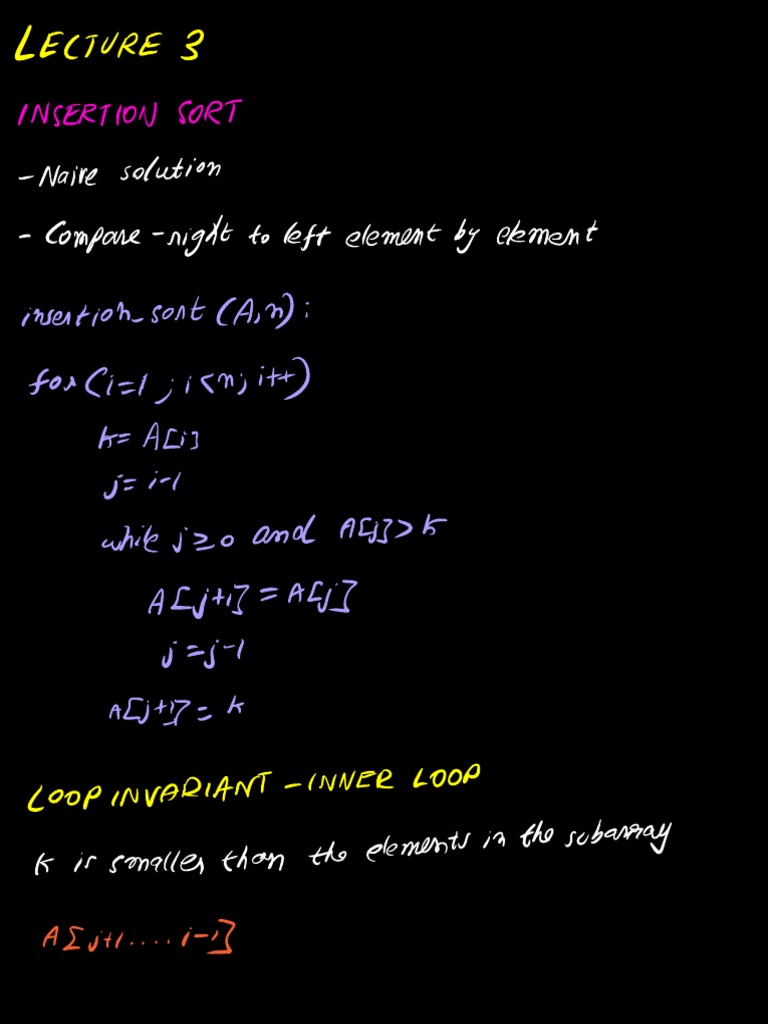 LECTURE 3
INSERTION SORT
- Naive solution
- Compare - right to left element by element
insertion_sort (A,n):
for (i=1 ; i<n; i++)
k= A[i]
j= i-1
while j≥0 and A[j]>k
A[j+1] = A[j]
j=j-1
A[j+1] = k
LOOP INVARIANT - INNER LOOP
k is smaller than the elements in the subarray
A[j+1....i-1]